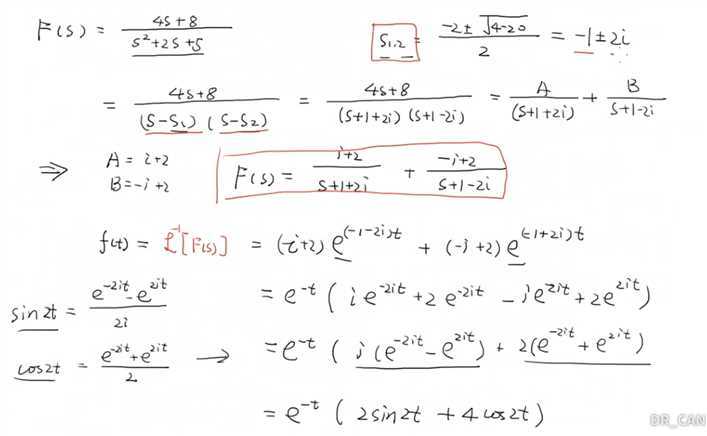 F(s) = (4s+8)/(s²+2s+5)    s₁,₂ = (-2±√(4-20))/2 = -1±2i
= (4s+8)/((s-s₁)(s-s₂)) = (4s+8)/((s+1+2i)(s+1-2i)) = A/(s+1+2i) + B/(s+1-2i)
⇒ A = i+2
B = -i+2
F(s) = (i+2)/(s+1+2i) + (-i+2)/(s+1-2i)
f(t) = ℒ⁻¹[F(s)] = (i+2)e^((-1-2i)t) + (-i+2)e^((-1+2i)t)
sin2t = (e^(-2it) - e^(2it))/(2i)    = e^(-t)(ie^(-2it) + 2e^(-2it) - ie^(2it) + 2e^(2it))
cos2t = (e^(-2it) + e^(2it))/2 → = e^(-t)(i(e^(-2it) - e^(2it)) + 2(e^(-2it) + e^(2it)))
= e^(-t)(2sin2t + 4cos2t)
DR_CAN